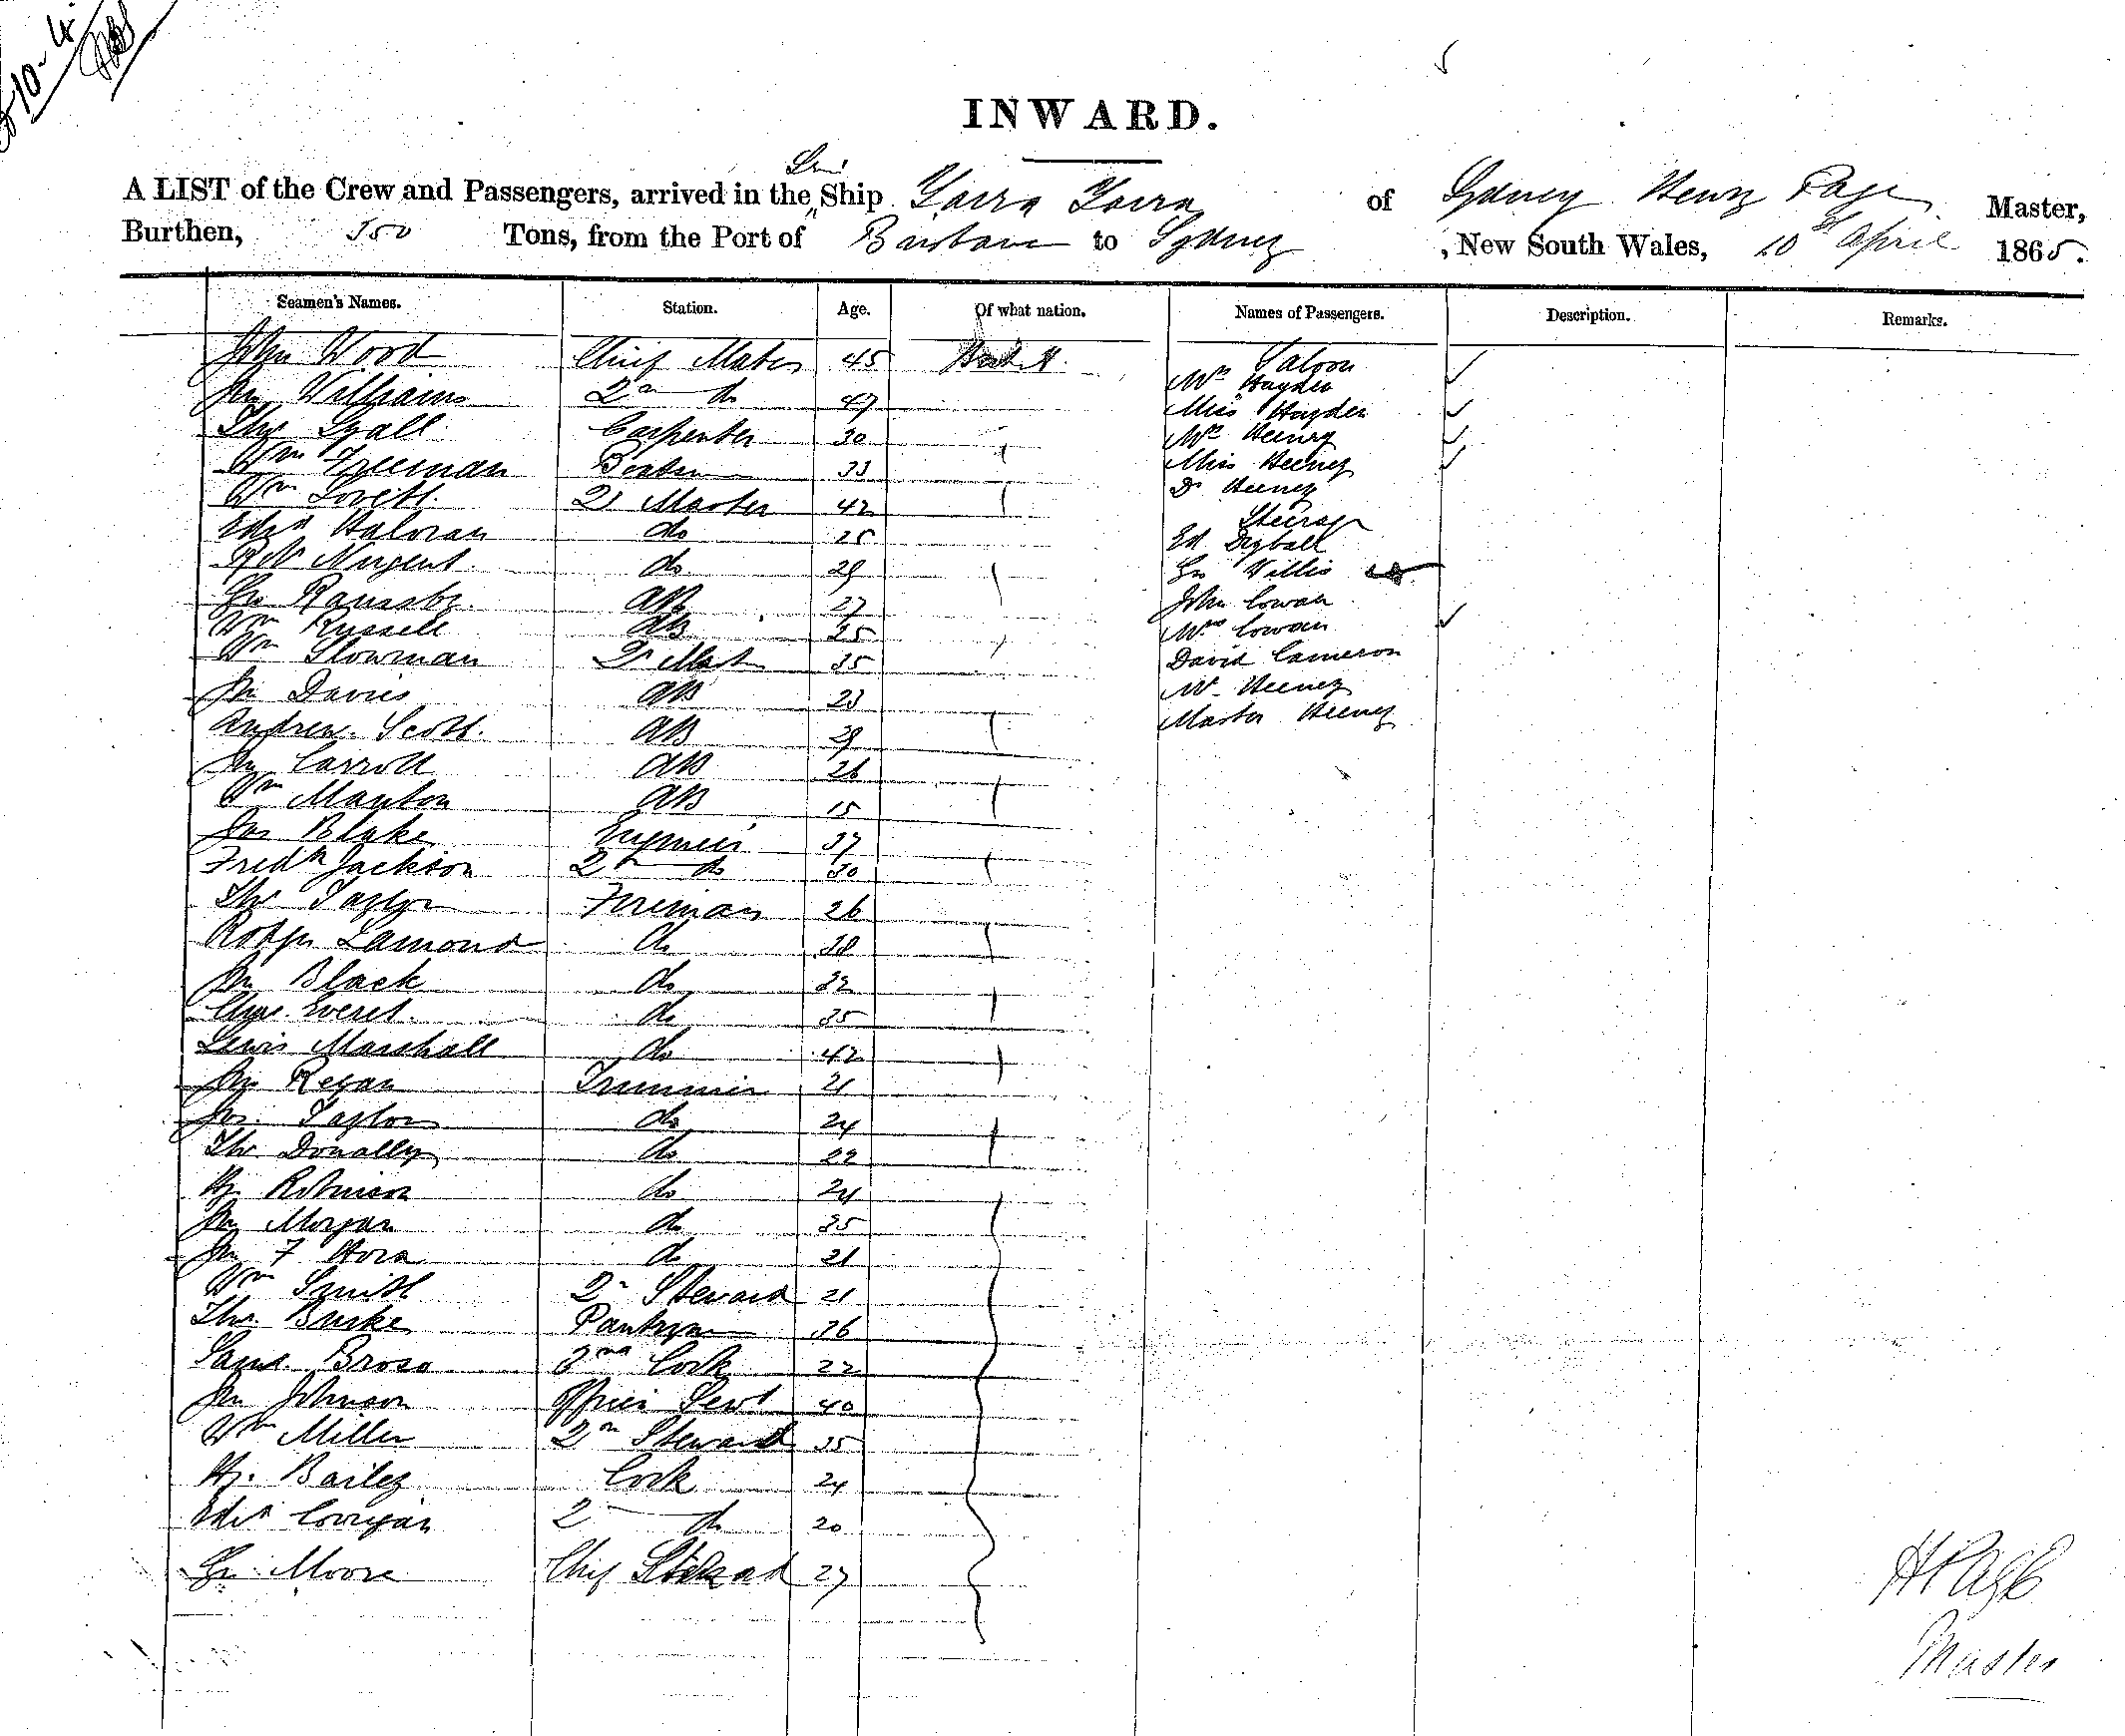 INWARD.
A LIST of the Crew and Passengers, arrived in the Ship Yarra Yarra of Sydney Henry Page Master,
Burthen, 350 Tons, from the Port of Brisbane to Sydney, New South Wales, 10th April 1865.
Seamen's Names. Station. Age. Of what nation. Names of Passengers. Description. Remarks.
John Wood Chief Mate 45 British Saloon
Jn Williams 2n do 47 Mrs Hayden
Miss Hayden
Thos Lyall Carpenter 30 Mrs Heeney
Wm Freeman Boatsn 33 Miss Heeney
Wm Lovett Qr Master 42 Dr Heeney
Steerage
Edwd Haloran do 25 Ed Dryball
Robt Nugent do 29 Go Willis
Go Ramsby AB 27 John Cowan
Wm Russell AB 25 Mrs Cowan
Wm Slowman Qr Mast 35 David Cameron
Jn Davies AB 23 Mr Heeney
Andrew Scott AB 29 Master Heeney
Jn Carroll AB 26
Wm Manton AB 15
Jas Blake Engineer 37
Fredk Jackson 2n do 30
Thos Taylor Fireman 26
Rodgr Lamond do 38
Jn Black do 32
Chas Everet do 35
Lewis Marshall do 42
Jn Regan Trimmer 21
Jos. Taylor do 24
Thos Donally do 22
Hy Robinson do 24
Jn Morgan do 35
Jn F Hora do 21
Wm Smith 2n Steward 21
Thos Burke Pantryman 36
Saml. Broso 3rd Cook 22
Jn Johnson Officer Servt 40
Wm Miller 2n Steward 35
Hy. Bailey Cook 24
Edwd Corrigan 2 do 20
Go Moore Chief Steward 27
H Page
Master